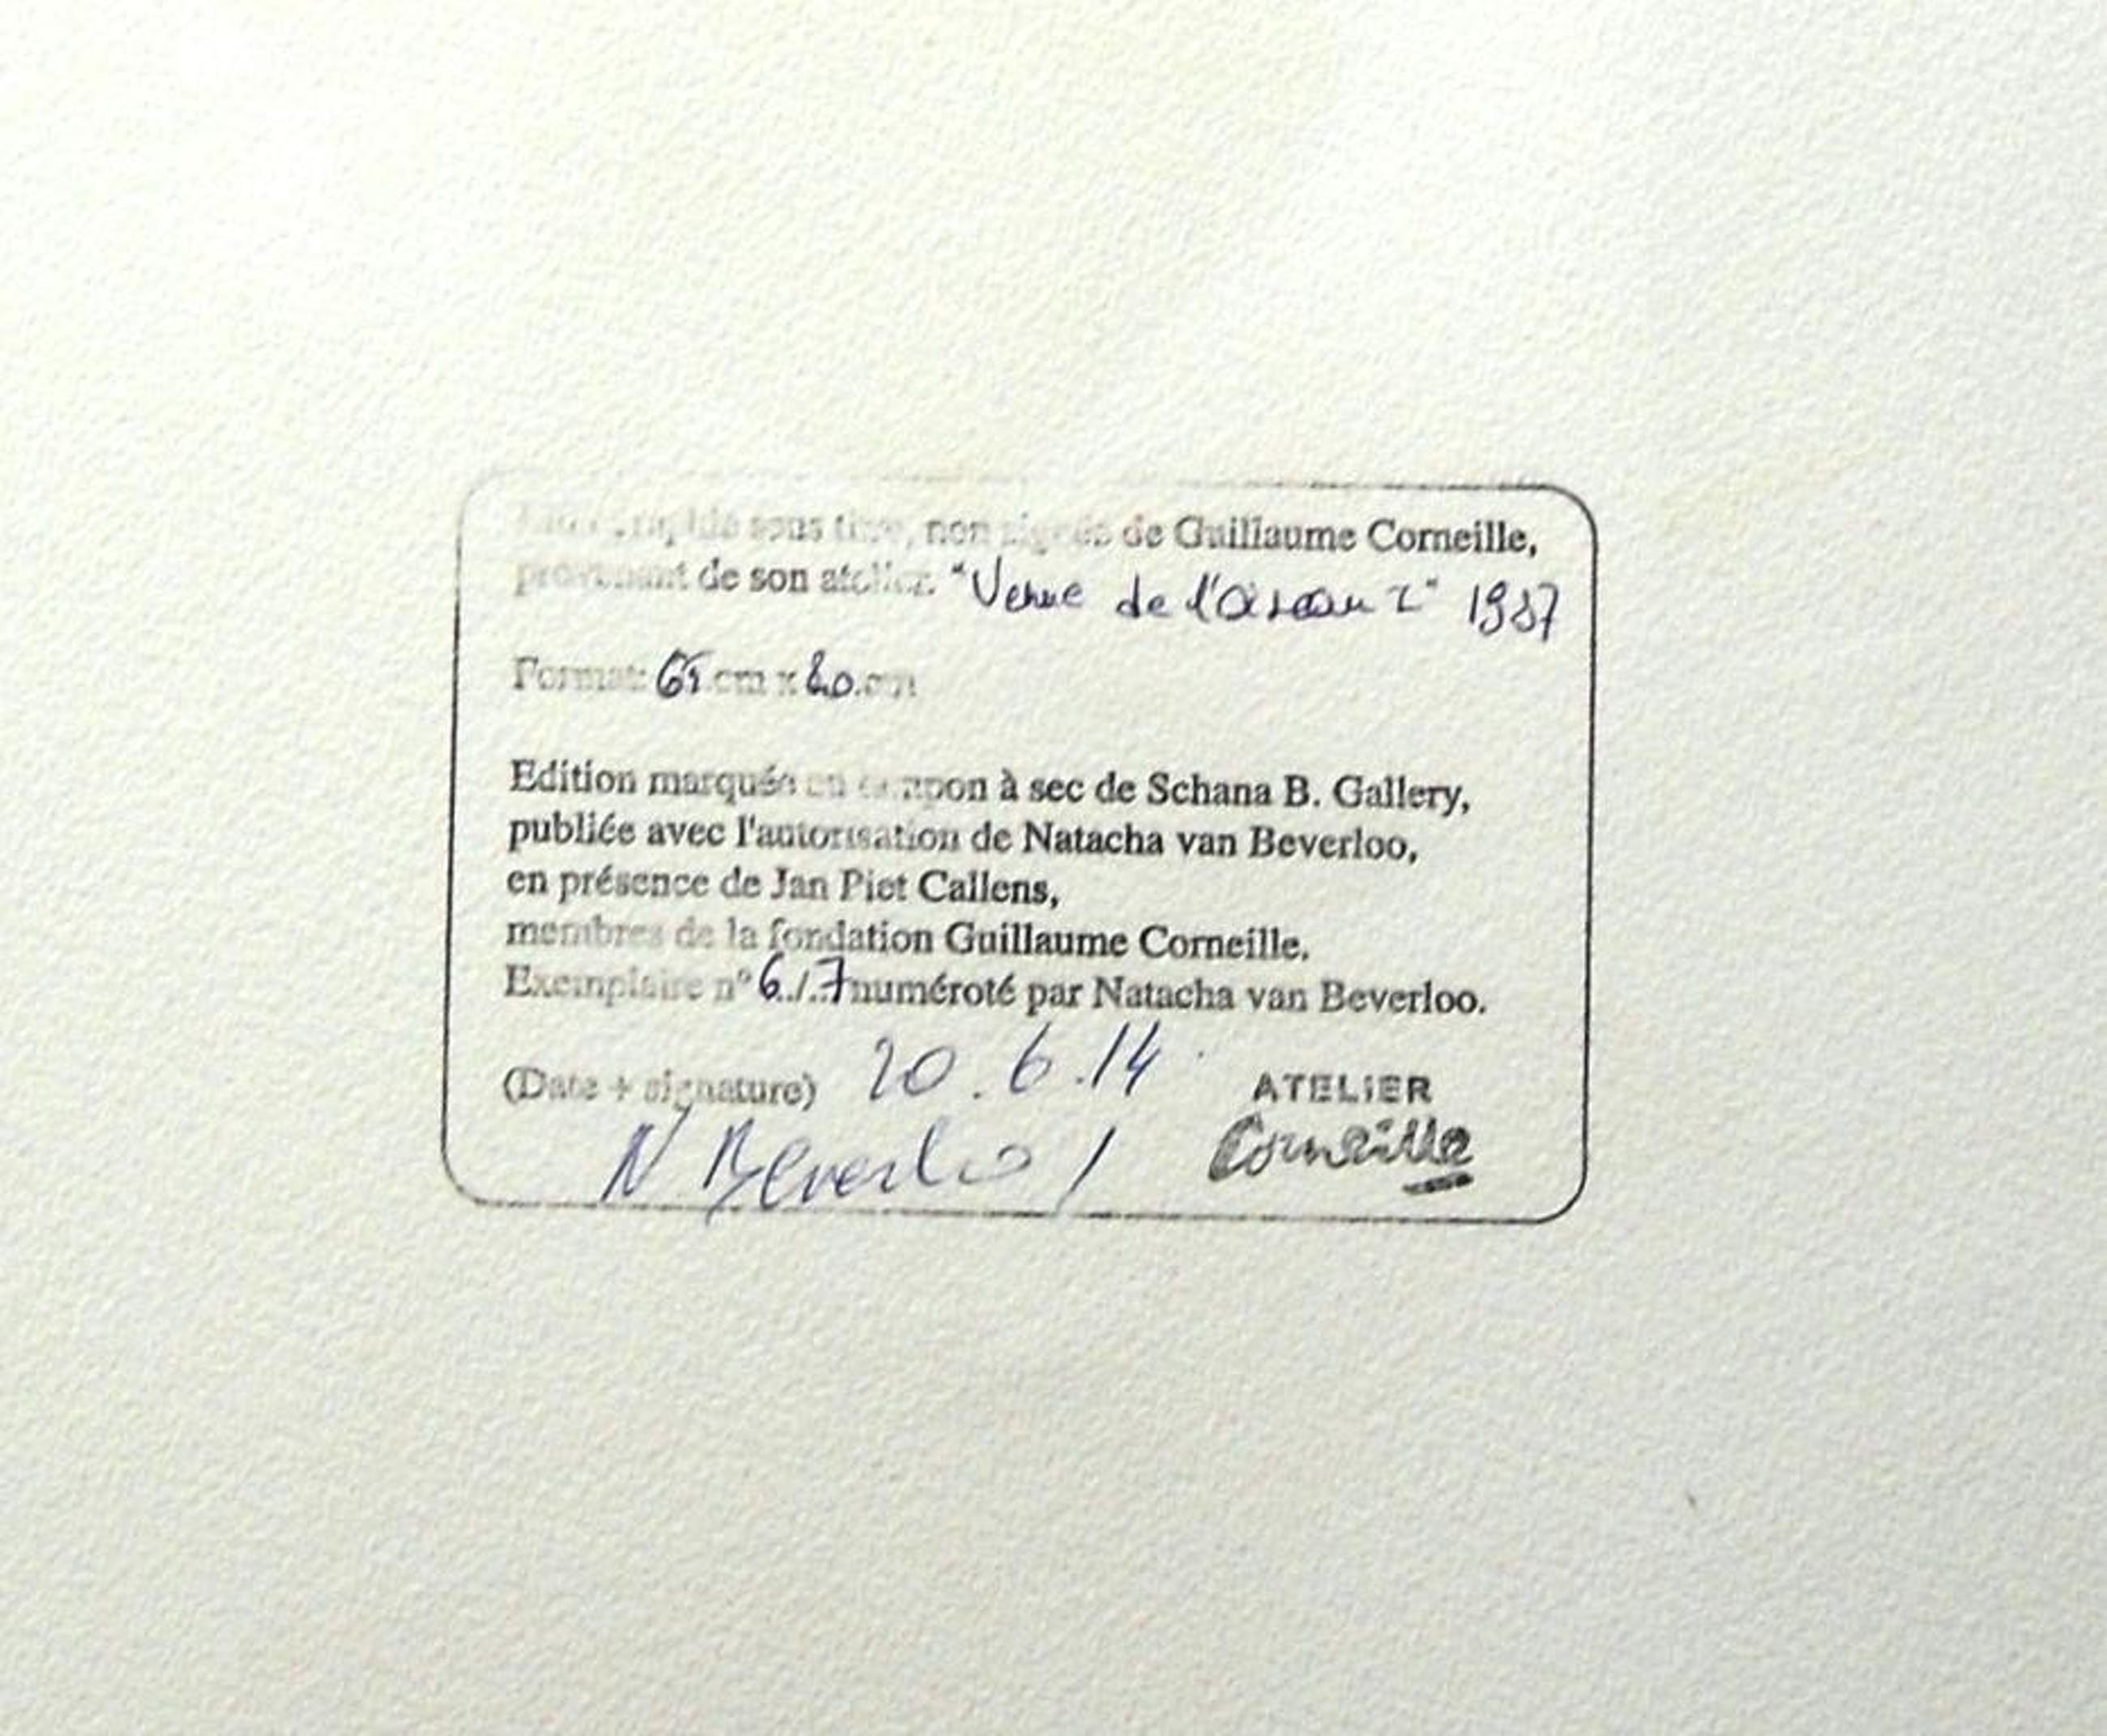 sous non de Guillaume Corneille,
provenant de son atelier. "Venue de l'oiseau 1987
Format: 65 cm x 80 cm
Edition marquée tampon à sec de Schana B. Gallery,
publiée avec l'autorisation de Natacha van Beverloo,
en présence de Jan Piet Callens,
membres de la fondation Guillaume Corneille.
Exemplaire n° 6 / 7 numéroté par Natacha van Beverloo.
(Date + signature) 20.6.14
ATELIER
N Beverloo
Corneille